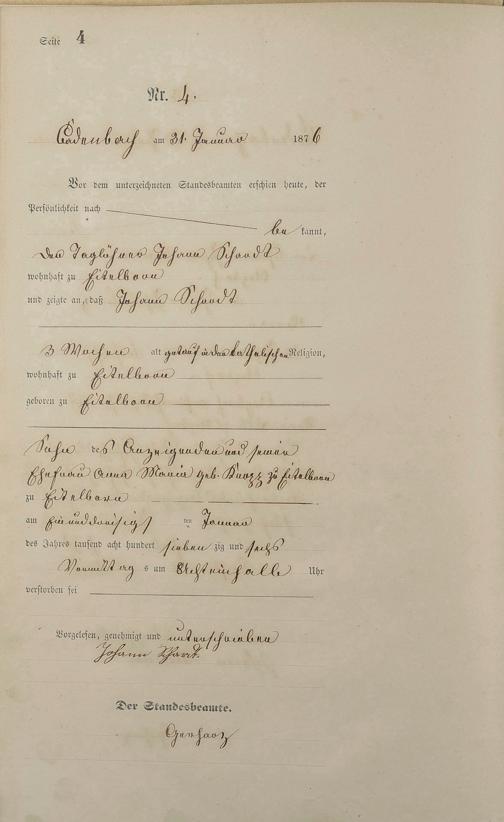 Seite 4
Nr. 4.
Cadenbach am 31. Januar 1876
Vor dem unterzeichneten Standesbeamten erschien heute, der
Persönlichkeit nach
be kannt,
der Taglöhner Johann Schardt
wohnhaft zu Eitelborn
und zeigte an, daß Johann Schardt
3 Wochen alt getauft in der katholischen Religion,
wohnhaft zu Eitelborn
geboren zu Eitelborn
Sohn des Anzeigenden und seiner
Ehefrau Anna Maria geb. Knopp zu Eitelborn
zu Eitelborn
am Einunddreisigs ten Januar
des Jahres tausend acht hundert sieben zig und sechs
Vormittag s um Achteinhalb Uhr
verstorben sei
Vorgelesen, genehmigt und unterschrieben
Johann Schardt
Der Standesbeamte.
Gerharz